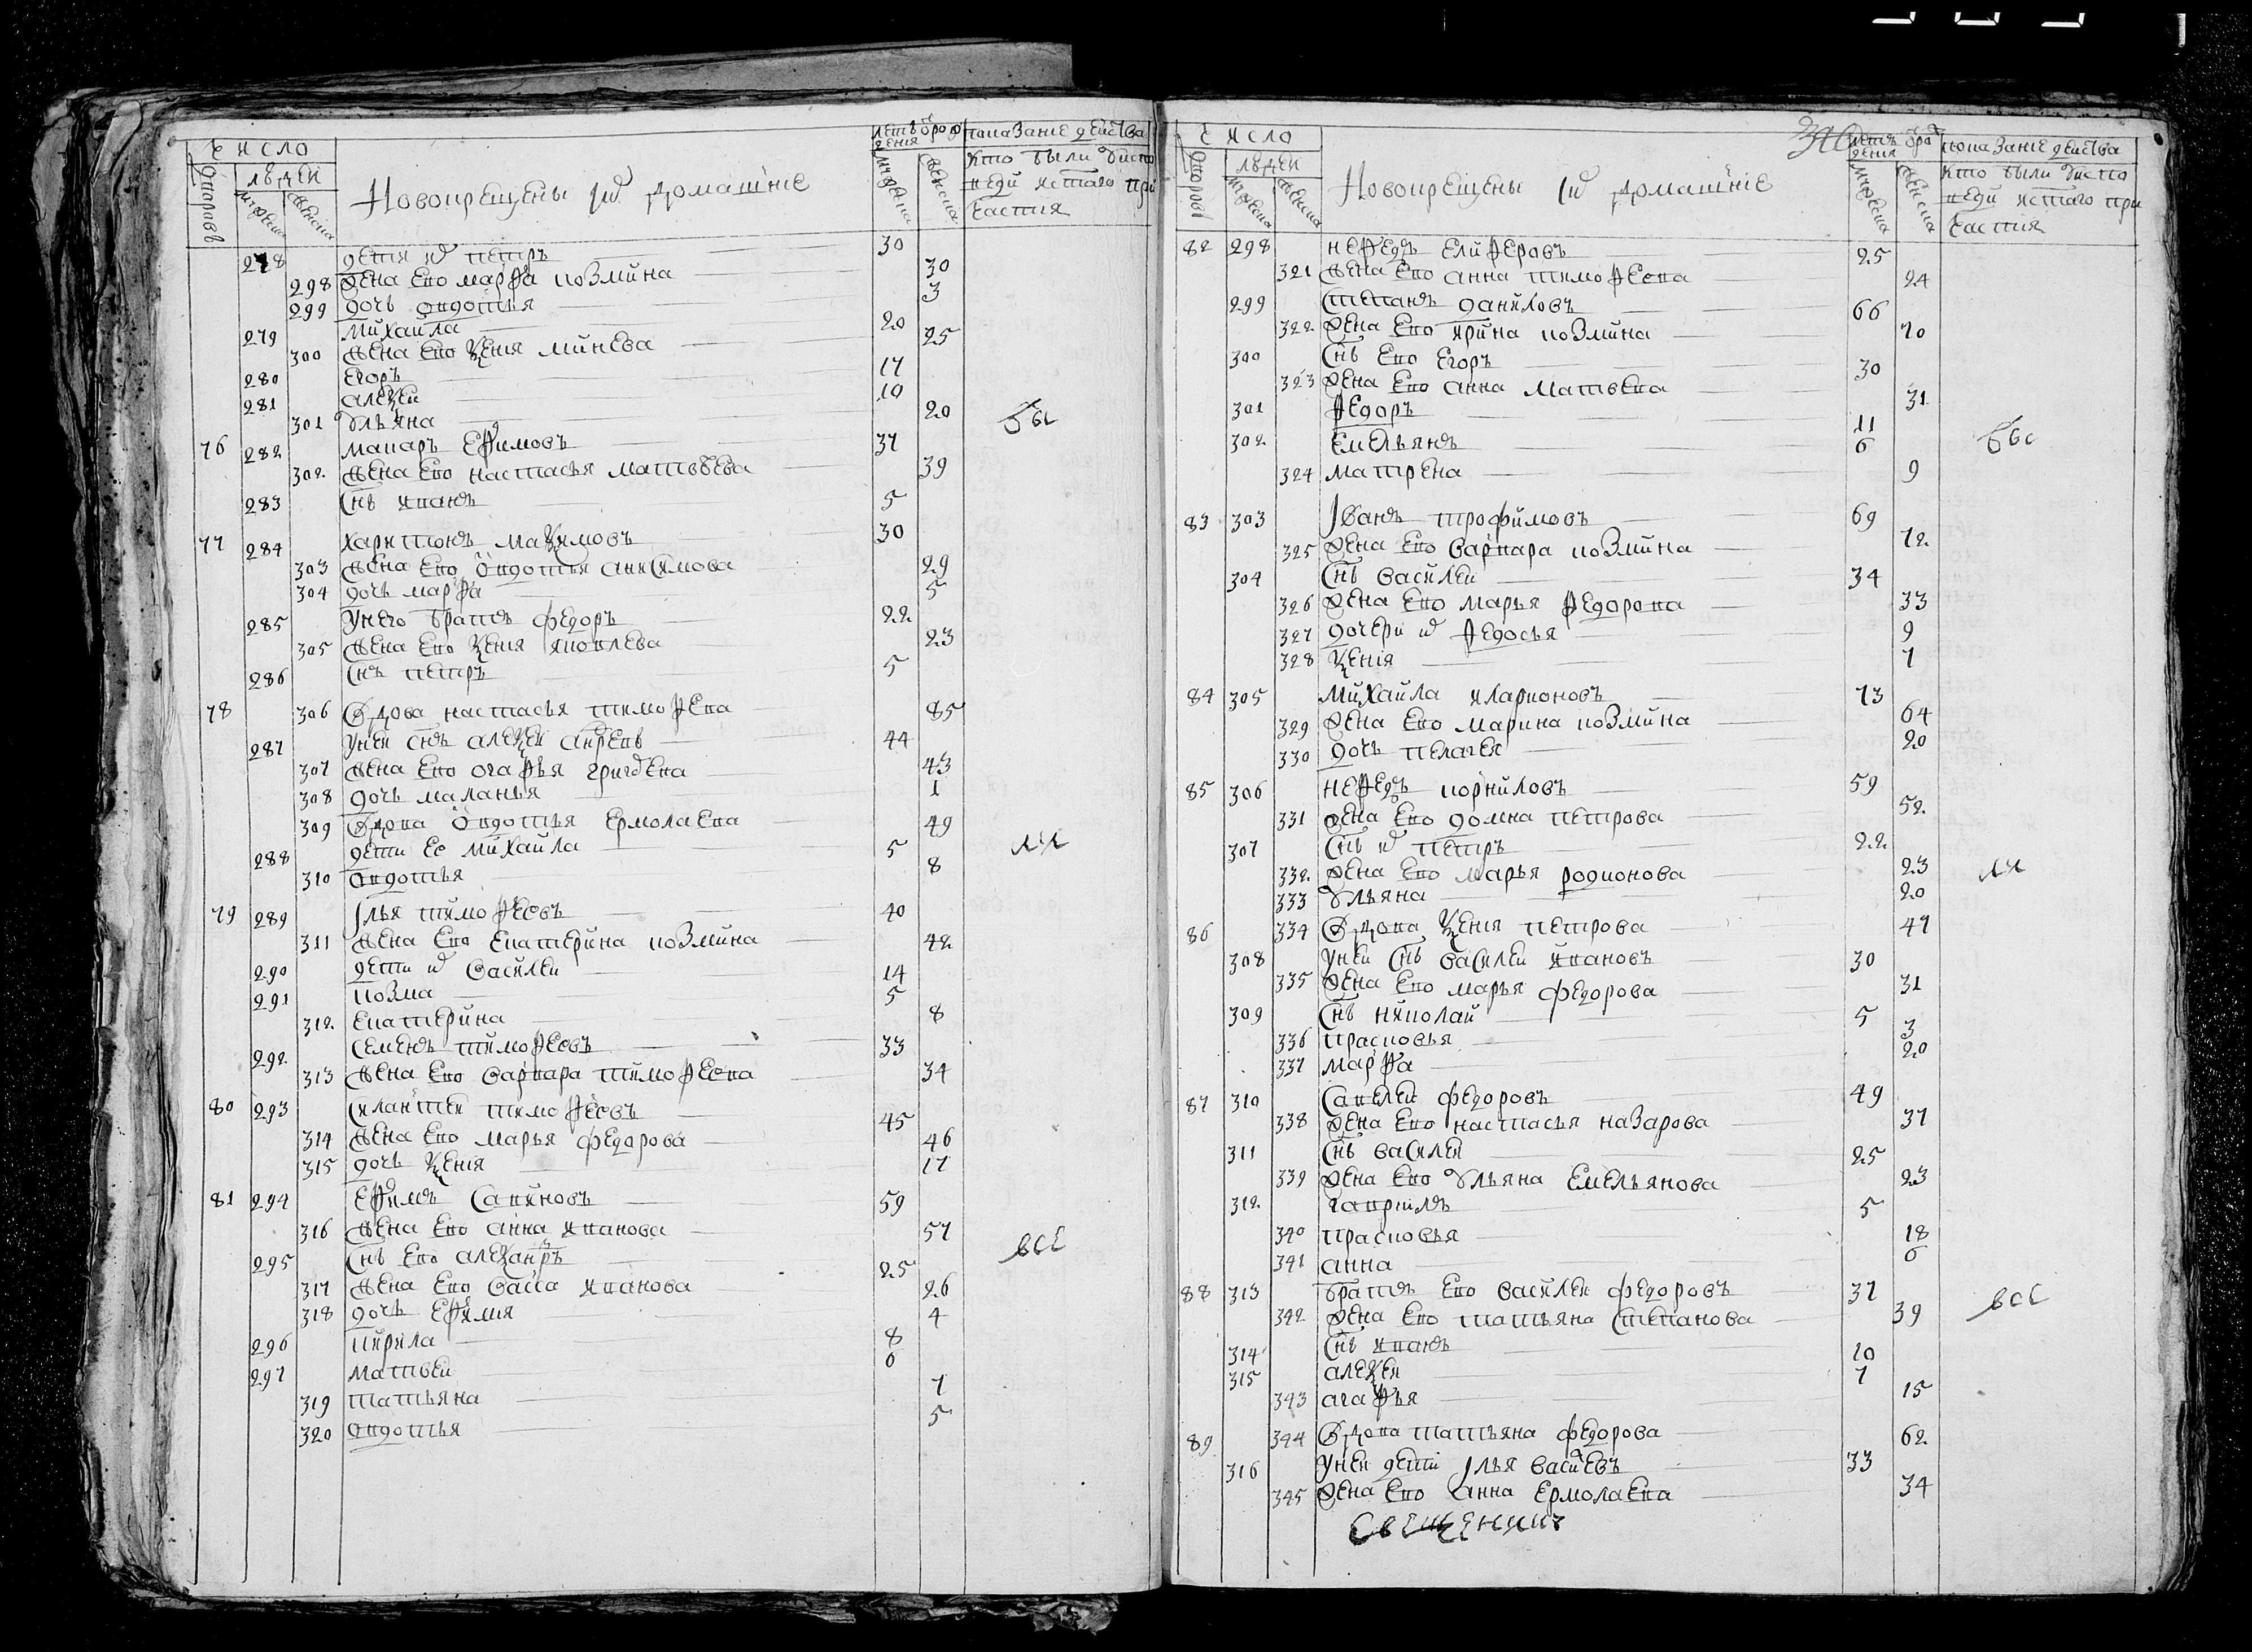 число
дворовъ
людей
мужеска
женска
Новокрещены и домашние
летъ от рождения
мужеска
женска
показание действа
кто были у исповеди и святаго причастия
278 дети их петръ 30
298 жена ево марфа козмина 30
299 дочь овдотья 3
279 михаила 20
300 жена ево ксения минева 25
280 егоръ 17
281 алексеи 10
301 ульяна 20
бы
76 282 макаръ ефимовъ 37
302 жена ево настасья матвеева 39
283 снъ иванъ 5
77 284 харитонъ максимовъ 30
303 жена ево овдотья анисимова 29
304 дочь марфа 5
285 у него братъ федоръ 22
305 жена ево ксения яковлева 23
286 снъ петръ 5
78 306 вдова настасья тимофеева 85
287 у неи снъ алексеи андреевъ 44
307 жена ево огафья григорева 43
308 дочь маланья 1
309 вдова овдотья ермолаева 49
288 дети ее михаила 5
ли
310 овдотья 8
79 289 илья тимофеевъ 40
311 жена ево екатерина козмина 42
290 дети их василеи 14
291 козма 5
312 екатерина 8
292 семенъ тимофеевъ 33
313 жена ево варвара тимофеева 34
80 293 силантеи тимофеевъ 45
314 жена ево марья федорова 46
315 дочь ксения 17
81 294 ефимъ савиновъ 59
316 жена ево анна иванова 57
295 снъ ево александръ 25
все
317 жена ево васса иванова 26
318 дочь ефимия 4
296 кирила 8
297 матвеи 6
319 татьяна 7
320 овдотья 5
число
дворовъ
людей
мужеска
женска
Новокрещены и домашние
летъ от рождения
мужеска
женска
показание действа
кто были у исповеди и святаго причастия
82 298 нефедъ елиферовъ 25
321 жена ево анна тимофеева 24
299 степанъ даниловъ 66
322 жена ево ирина козмина 70
300 снъ ево егоръ 30
323 жена ево анна матвева 31
301 федоръ 11
302 емельянъ 6
бы
324 матрена 9
83 303 иванъ трофимовъ 69
325 жена ево варвара козмина 72
304 снъ василеи 34
326 жена ево марья федорова 33
327 дочери их федосья 9
328 ксения 7
84 305 михаила иларионовъ 73
329 жена ево марина козмина 64
330 дочь пелагея 20
85 306 нефедъ корниловъ 59
331 жена ево домна петрова 52
307 снъ их петръ 22
332 жена ево марья родионова 23
ли
333 ульяна 20
86 334 вдова ксения петрова 47
308 у неи снъ василеи ивановъ 30
335 жена ево марья федорова 31
309 снъ николаи 5
336 прасковья 3
337 марфа 20
87 310 савелеи федоровъ 49
338 жена ево настасья назарова 37
311 снъ василеи 25
339 жена ево ульяна емельянова 23
312 гавриилъ 5
340 прасковья 18
341 анна 6
88 313 братъ ево василеи федоровъ 37
все
342 жена ево татьяна степанова 39
314 снъ иванъ 10
315 алексеи 7
343 агафья 15
89 344 вдова татьяна федорова 62
316 у неи дети илья василевъ 33
345 жена ево анна ермолаева 34
Священникъ